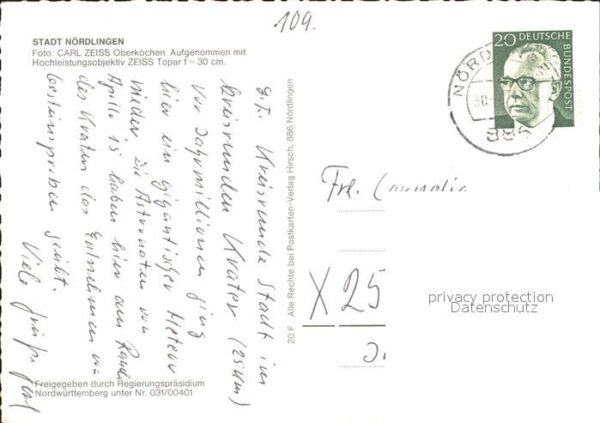 109.
STADT NÖRDLINGEN
Foto: CARL ZEISS Oberkochen. Aufgenommen mit
Hochleistungsobjektiv ZEISS Topar f = 30 cm.
Kreisrunde Stadt im
kreisrunden Krater (25 km)
vor Jahrmillionen ging
hier ein gigantischer Meteor
nieder. Die Astronauten von
Apollo 15 haben hier am Rande
des Kraters das Entnehmen von
Gesteinsproben geübt.
Viele Grüße
20 F Alle Rechte bei Postkarten-Verlag Hirsch, 886 Nördlingen
Freigegeben durch Regierungspräsidium
Nordwürttemberg unter Nr. 031/00401
20 DEUTSCHE
BUNDESPOST
NÖRD
886
Frl.
X 25
privacy protection
Datenschutz